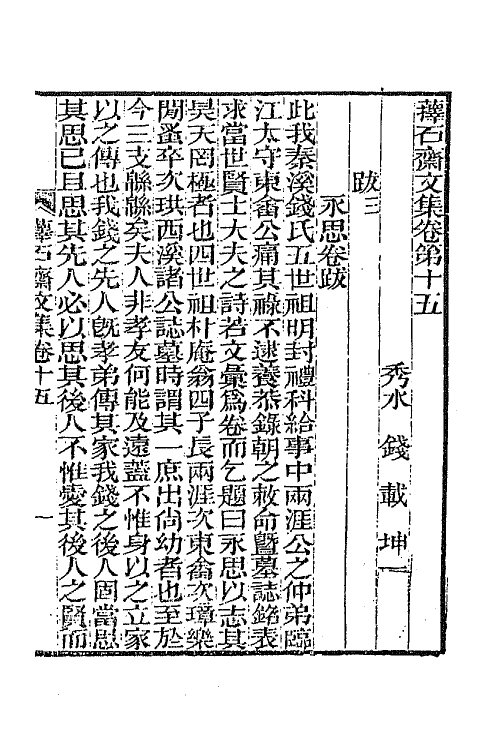 蘀石齋文集卷第十五
秀水　錢　載　坤一
跋三
永思卷跋
此我秦溪錢氏五世祖明封禮科給事中兩涯公之仲弟臨
江太守東畬公痛其祿不逮養恭錄朝之敕命暨墓誌銘表
求當世賢士大夫之詩若文彙爲卷而乞題曰永思以志其
昊天罔極者也四世祖朴庵翁四子長兩涯次東畬次璋樂
閒蚤卒次珙西溪諸公誌墓時謂其一庶出尙幼者也至於
今三支緜緜矣夫人非孝友何能及遠蓋不惟身以之立家
以之傳也我錢之先人旣孝弟傳其家我錢之後人固當思
其思已且思其先人必以思其後人不惟愛其後人之賢而
蘀石齋文集卷十五
一